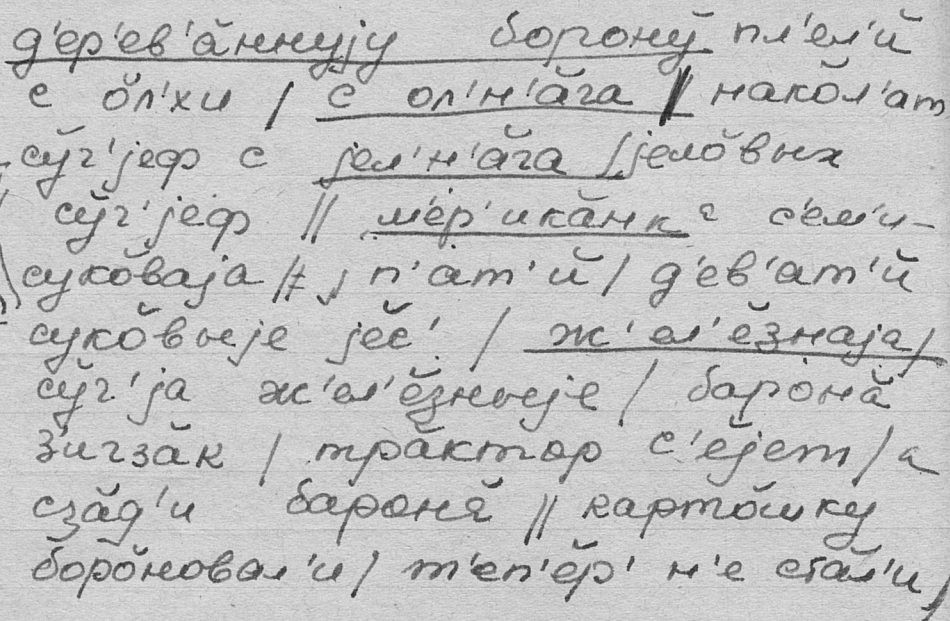 д'ер'ев'áннуjу боронý пл'ел'и́
с óл'хи / с ол'н'áга // накóл'ат
сýг'jеф с jел'н'áга / jелóвых
сýг'jеф // м'ер'икáнка с'ем'и-
сукóваjа // п'ат'и́ / д'ев'ат'и́
сукóвыjе jес'т' / ж'ел'éзнаjа /
сýг'jа ж'ел'éзныjе / баронá
з'игзáк / трáктор с'éjет / а
сзáд'и баронá // картóшку
борóновал'и / т'еп'éр' н'е стáл'и /